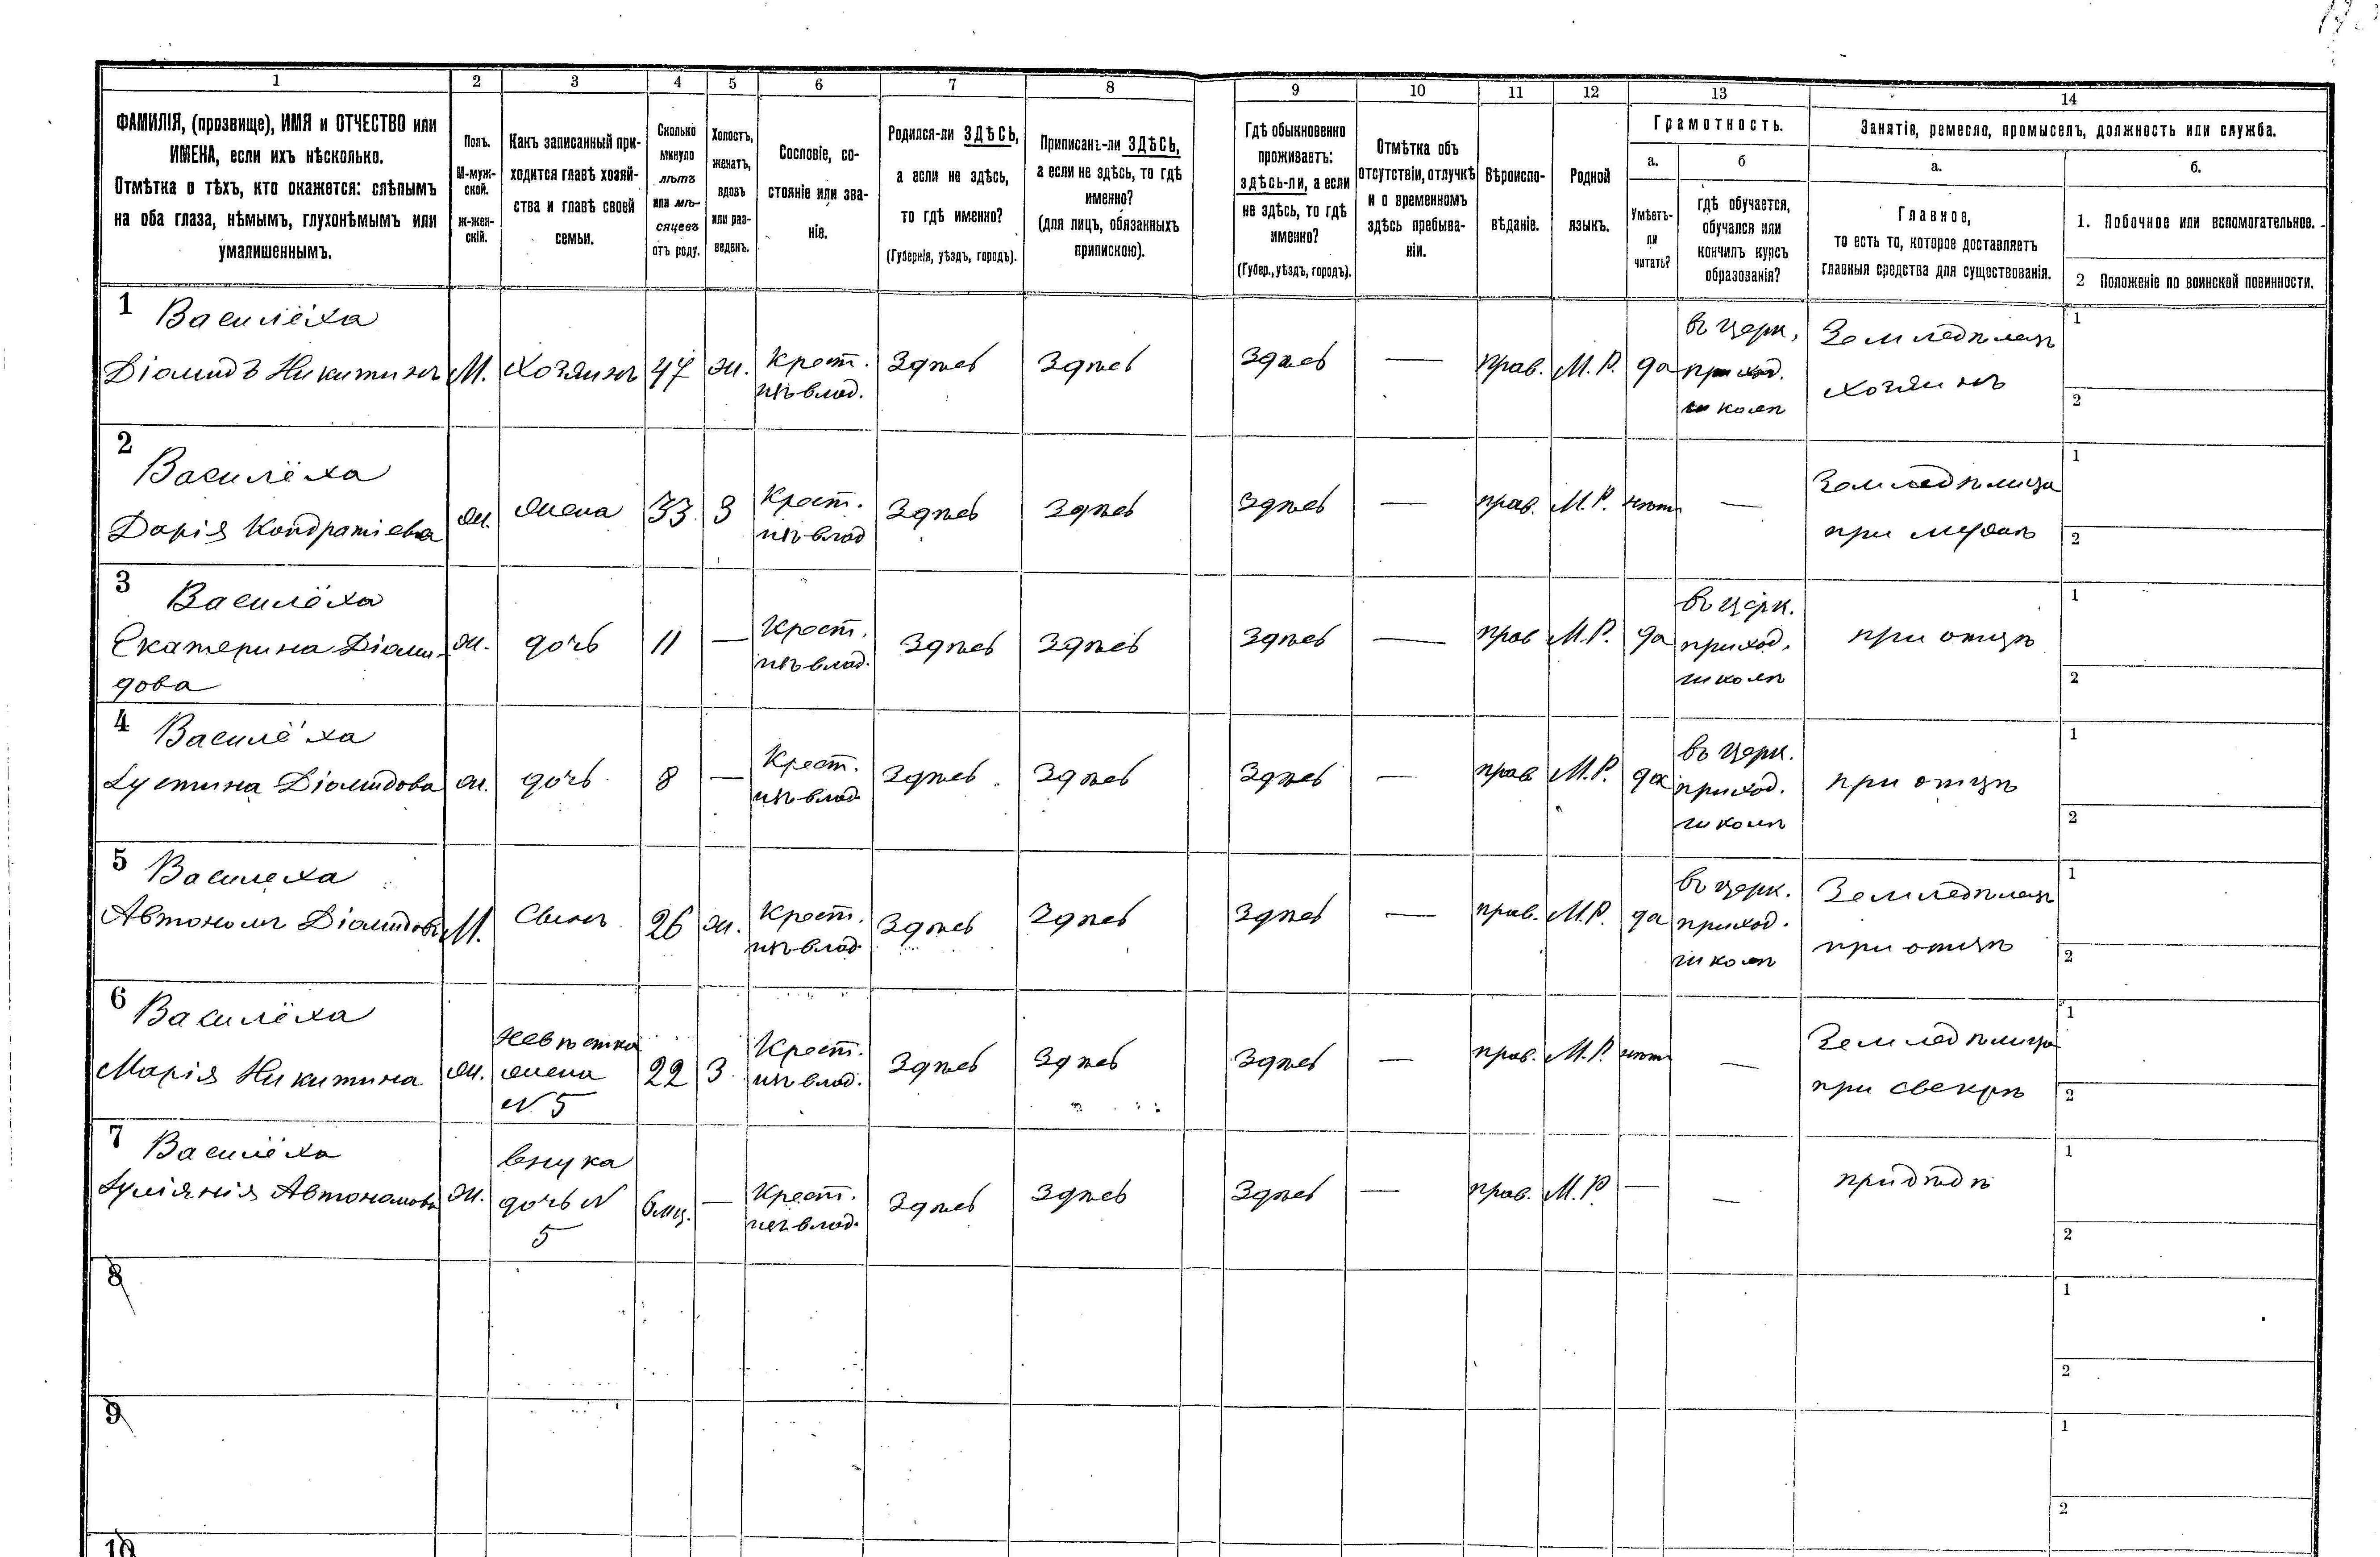 1 2 3 4 5 6 7 8 9 10 11 12 13 14
ФАМИЛІЯ, (прозвище), ИМЯ и ОТЧЕСТВО или
ИМЕНА, если ихъ нѣсколько.
Отмѣтка о тѣхъ, кто окажется: слѣпымъ
на оба глаза, нѣмымъ, глухонѣмымъ или
умалишеннымъ.
Полъ.
М-муж-
ской.
ж-жен-
скій.
Какъ записанный при-
ходится главѣ хозяй-
ства и главѣ своей
семьи.
Сколько
минуло
лѣтъ
или мѣ-
сяцевъ
отъ роду.
Холостъ,
женатъ,
вдовъ
или раз-
веденъ.
Сословіе, со-
стояніе или зва-
ніе.
Родился-ли ЗДѢСЬ,
а если не здѣсь,
то гдѣ именно?
(Губернія, уѣздъ, городъ).
Приписанъ-ли ЗДѢСЬ,
а если не здѣсь, то гдѣ
именно?
(для лицъ, обязанныхъ
припискою).
Гдѣ обыкновенно
проживаетъ:
здѣсь-ли, а если
не здѣсь, то гдѣ
именно?
(Губер., уѣздъ, городъ).
Отмѣтка объ
отсутствіи, отлучкѣ
и о временномъ
здѣсь пребыва-
ніи.
Вѣроиспо-
вѣданіе.
Родной
языкъ.
Грамотность.
а.
Умѣетъ-
ли
читать?
б
гдѣ обучается,
обучался или
кончилъ курсъ
образованія?
Занятіе, ремесло, промыселъ, должность или служба.
а.
Главное,
то есть то, которое доставляетъ
главныя средства для существованія.
б.
1. Побочное или вспомогательное.
2 Положеніе по воинской повинности.
1 Василёха
Діомидъ Никитинъ
М.
Хозяинъ
47
ж.
Крест.
изъ влад.
Здѣсь
Здѣсь
Здѣсь
—
прав.
М.Р.
да
въ церк,
приход.
школѣ
Земледѣлецъ
хозяинъ
1
2
2
Василёха
Дарія Кондратіева
ж.
жена
33
З
Крест.
изъ влад
Здѣсь
Здѣсь
Здѣсь
—
прав.
М.Р.
нѣтъ
—
Земледѣлица
при мужѣ
1
2
3
Василёха
Екатерина Діоми-
дова
ж.
дочь
11
—
Крест.
изъ влад.
Здѣсь
Здѣсь
Здѣсь
—
прав
М.Р.
да
въ церк.
приход.
школѣ
при отцѣ
1
2
4
Василёха
Іустина Діомидова
ж.
дочь
8
—
Крест.
изъ влад
Здѣсь
Здѣсь
Здѣсь
—
прав
М.Р.
да
въ церк.
приход.
школѣ
при отцѣ
1
2
5
Василеха
Автономъ Діомидовъ
М.
Сынъ
26
ж.
Крест.
изъ влад
Здѣсь
Здѣсь
Здѣсь
—
прав.
М.Р.
да
въ церк.
приход.
школѣ
Земледѣлецъ
при отцѣ
1
2
6
Василёха
Марія Никитина
ж.
невѣстка
жена
N 5
22
З
Крест.
изъ влад.
Здѣсь
Здѣсь
Здѣсь
—
прав.
М.Р.
нѣтъ
—
Земледѣлица
при свекрѣ
1
2
7
Василёха
Іуліянія Автономова
ж.
внука
дочь N
5
6 мц.
—
Крест.
изъ влад.
Здѣсь
Здѣсь
Здѣсь
—
прав.
М.Р
—
—
при дѣдѣ
1
2
8
1
2
9
1
2
10